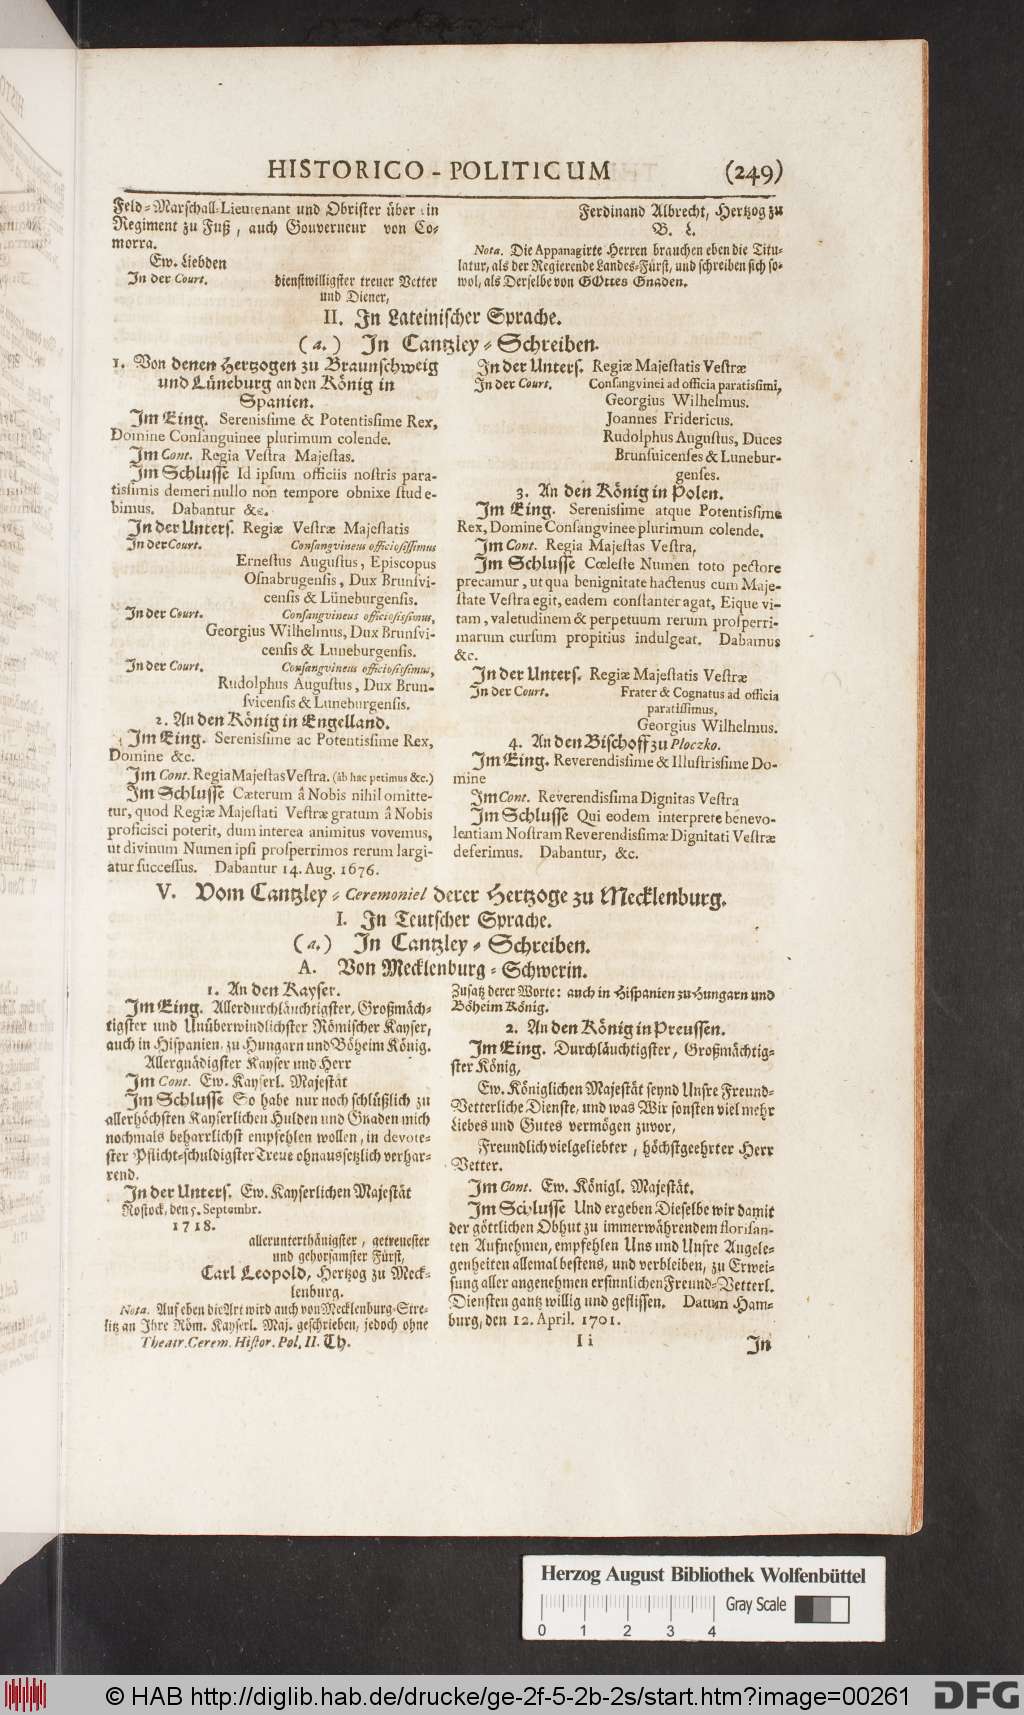 HISTORICO-POLITICUM (249)
Feld-Marschall-Lieutenant und Obrister über ein
Regiment zu Fuß, auch Gouverneur von Co-
morra.
Ew. Liebden
In der Court. dienstwilligster treuer Vetter
und Diener,
Ferdinand Albrecht, Hertzog zu
B. L.
Nota. Die Appanagirte Herren brauchen eben die Titu-
latur, als der Regierende Landes-Fürst, und schreiben sich so-
wol, als Derselbe von GOttes Gnaden.
II. In Lateinischer Sprache.
(a.) In Cantzley-Schreiben.
1. Von denen Hertzogen zu Braunschweig
und Lüneburg an den König in
Spanien.
Im Eing. Serenissime & Potentissime Rex,
Domine Consanguinee plurimum colende.
Im Cont. Regia Vestra Majestas.
Im Schlusse Id ipsum officiis nostris para-
tissimis demeri nullo non tempore obnixe stude-
bimus. Dabantur &c.
In der Unters. Regiæ Vestræ Majestatis
In der Court. Consangvineus officiosissimus
Ernestus Augustus, Episcopus
Osnabrugensis, Dux Brunsvi-
censis & Lüneburgensis.
In der Court. Consangvineus officiosissimus,
Georgius Wilhelmus, Dux Brunsvi-
censis & Luneburgensis.
In der Court. Consangvineus officiosissimus,
Rudolphus Augustus, Dux Brun-
svicensis & Luneburgensis.
2. An den König in Engelland.
Im Eing. Serenissime ac Potentissime Rex,
Domine &c.
Im Cont. Regia Majestas Vestra. (âb hac petimus &c.)
Im Schlusse Cæterum â Nobis nihil omitte-
tur, quod Regiæ Majestati Vestræ gratum â Nobis
proficisci poterit, dum interea animitus vovemus,
ut divinum Numen ipsi prosperrimos rerum largi-
atur successus. Dabantur 14. Aug. 1676.
In der Unters. Regiæ Majestatis Vestræ
In der Court. Consangvinei ad officia paratissimi,
Georgius Wilhelmus.
Joannes Fridericus.
Rudolphus Augustus, Duces
Brunsuicenses & Lunebur-
genses.
3. An den König in Polen.
Im Eing. Serenissime atque Potentissime
Rex, Domine Consangvinee plurimum colende.
Im Cont. Regia Majestas Vestra,
Im Schlusse Cœleste Numen toto pectore
precamur, ut qua benignitate hactenus cum Maje-
state Vestra egit, eadem constanter agat, Eique vi-
tam, valetudinem & perpetuum rerum prosperri-
marum cursum propitius indulgeat. Dabamus
&c.
In der Unters. Regiæ Majestatis Vestræ
In der Court. Frater & Cognatus ad officia
paratissimus,
Georgius Wilhelmus.
4. An den Bischoff zu Ploczko.
Im Eing. Reverendissime & Illustrissime Do-
mine
Im Cont. Reverendissima Dignitas Vestra
Im Schlusse Qui eodem interprete benevo-
lentiam Nostram Reverendissimæ Dignitati Vestræ
deferimus. Dabantur, &c.
V. Vom Cantzley-Ceremoniel derer Hertzoge zu Mecklenburg.
I. In Teutscher Sprache.
(a.) In Cantzley-Schreiben.
A. Von Mecklenburg-Schwerin.
1. An den Kayser.
Im Eing. Allerdurchläuchtigster, Großmäch-
tigster und Unüberwindlichster Römischer Kayser,
auch in Hispanien, zu Hungarn und Böheim König.
Allergnädigster Kayser und Herr
Im Cont. Ew. Kayserl. Majestät
Im Schlusse So habe nur noch schlüßlich zu
allerhöchsten Kayserlichen Hulden und Gnaden mich
nochmals beharrlichst empfehlen wollen, in devote-
ster Pflicht-schuldigster Treue ohnaussetzlich verhar-
rend.
In der Unters. Ew. Kayserlichen Majestät
Rostock, den 5. Septembr.
1718.
allerunterthänigster, getreuester
und gehorsamster Fürst,
Carl Leopold, Hertzog zu Meck-
lenburg.
Nota. Auf eben die Art wird auch von Mecklenburg-Stre-
litz an Ihre Röm. Kayserl. Maj. geschrieben, jedoch ohne
Zusatz derer Worte: auch in Hispanien zu Hungarn und
Böheim König.
2. An den König in Preussen.
Im Eing. Durchläuchtigster, Großmächtig-
ster König,
Ew. Königlichen Majestät seynd Unsre Freund-
Vetterliche Dienste, und was Wir sonsten viel mehr
Liebes und Gutes vermögen zuvor,
Freundlich vielgeliebter, höchstgeehrter Herr
Vetter.
Im Cont. Ew. Königl. Majestät.
Im Schlusse Und ergeben Dieselbe wir damit
der göttlichen Obhut zu immerwährendem florisan-
ten Aufnehmen, empfehlen Uns und Unsre Angele-
genheiten allemal bestens, und verbleiben, zu Erwei-
sung aller angenehmen ersinnlichen Freund-Vetterl.
Diensten gantz willig und geflissen. Datum Ham-
burg, den 12. April. 1701.
Theatr. Cerem. Histor. Pol. II. Th. I i In
Herzog August Bibliothek Wolfenbüttel
Gray Scale
0 1 2 3 4
© HAB http://diglib.hab.de/drucke/ge-2f-5-2b-2s/start.htm?image=00261 DFG